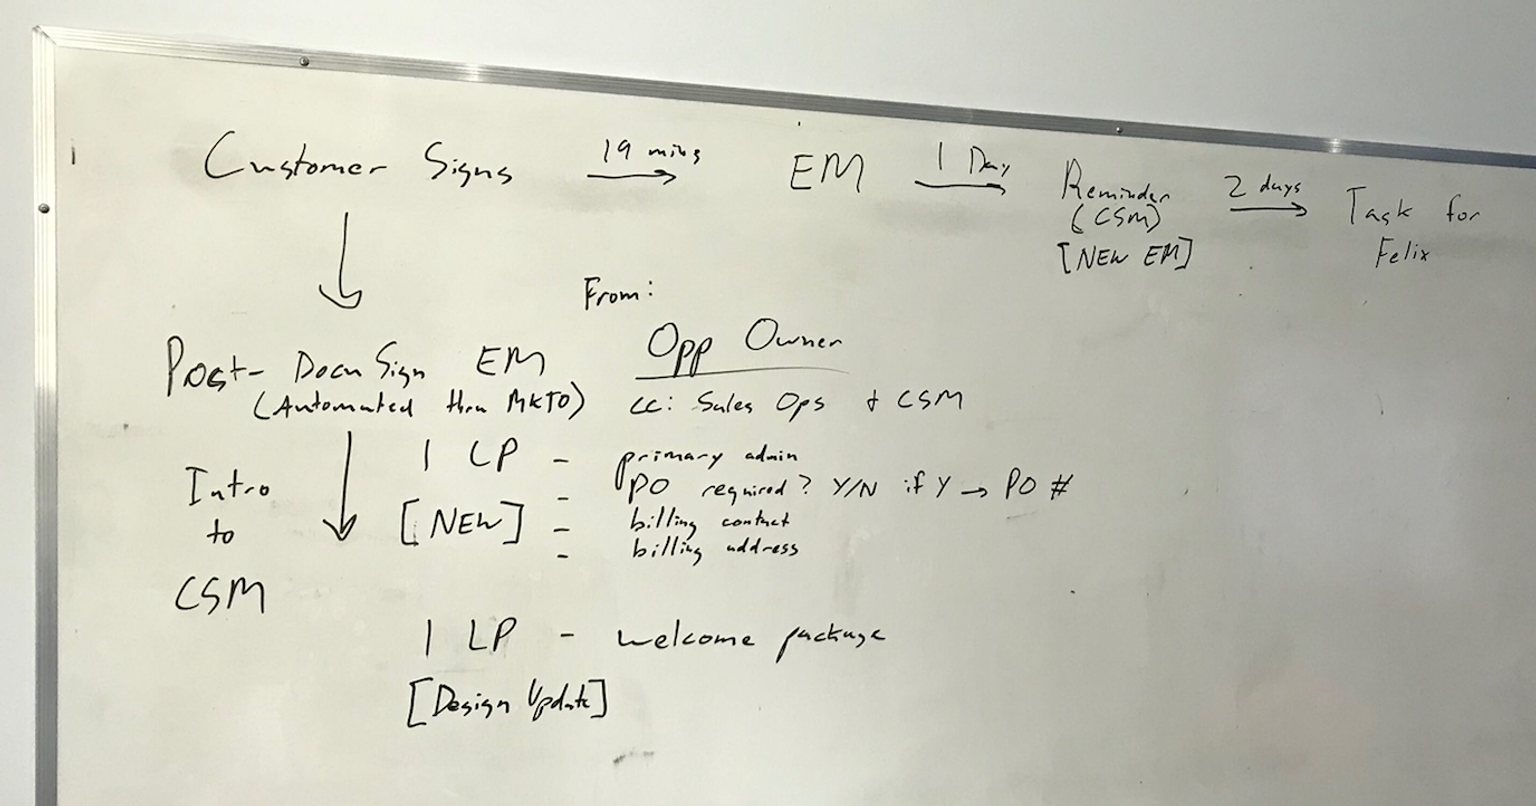 Customer Signs → 19 mins EM → 1 Day Reminder → 2 days Task for
(CSM) Felix
[NEW EM]
From:
Post-DocuSign EM Opp Owner
(Automated thru MKTO) cc: Sales Ops + CSM
1 LP - primary admin
- PO required? Y/N if Y → PO #
Intro to CSM
[NEW] - billing contact
- billing address
1 LP - welcome package
[Design Update]